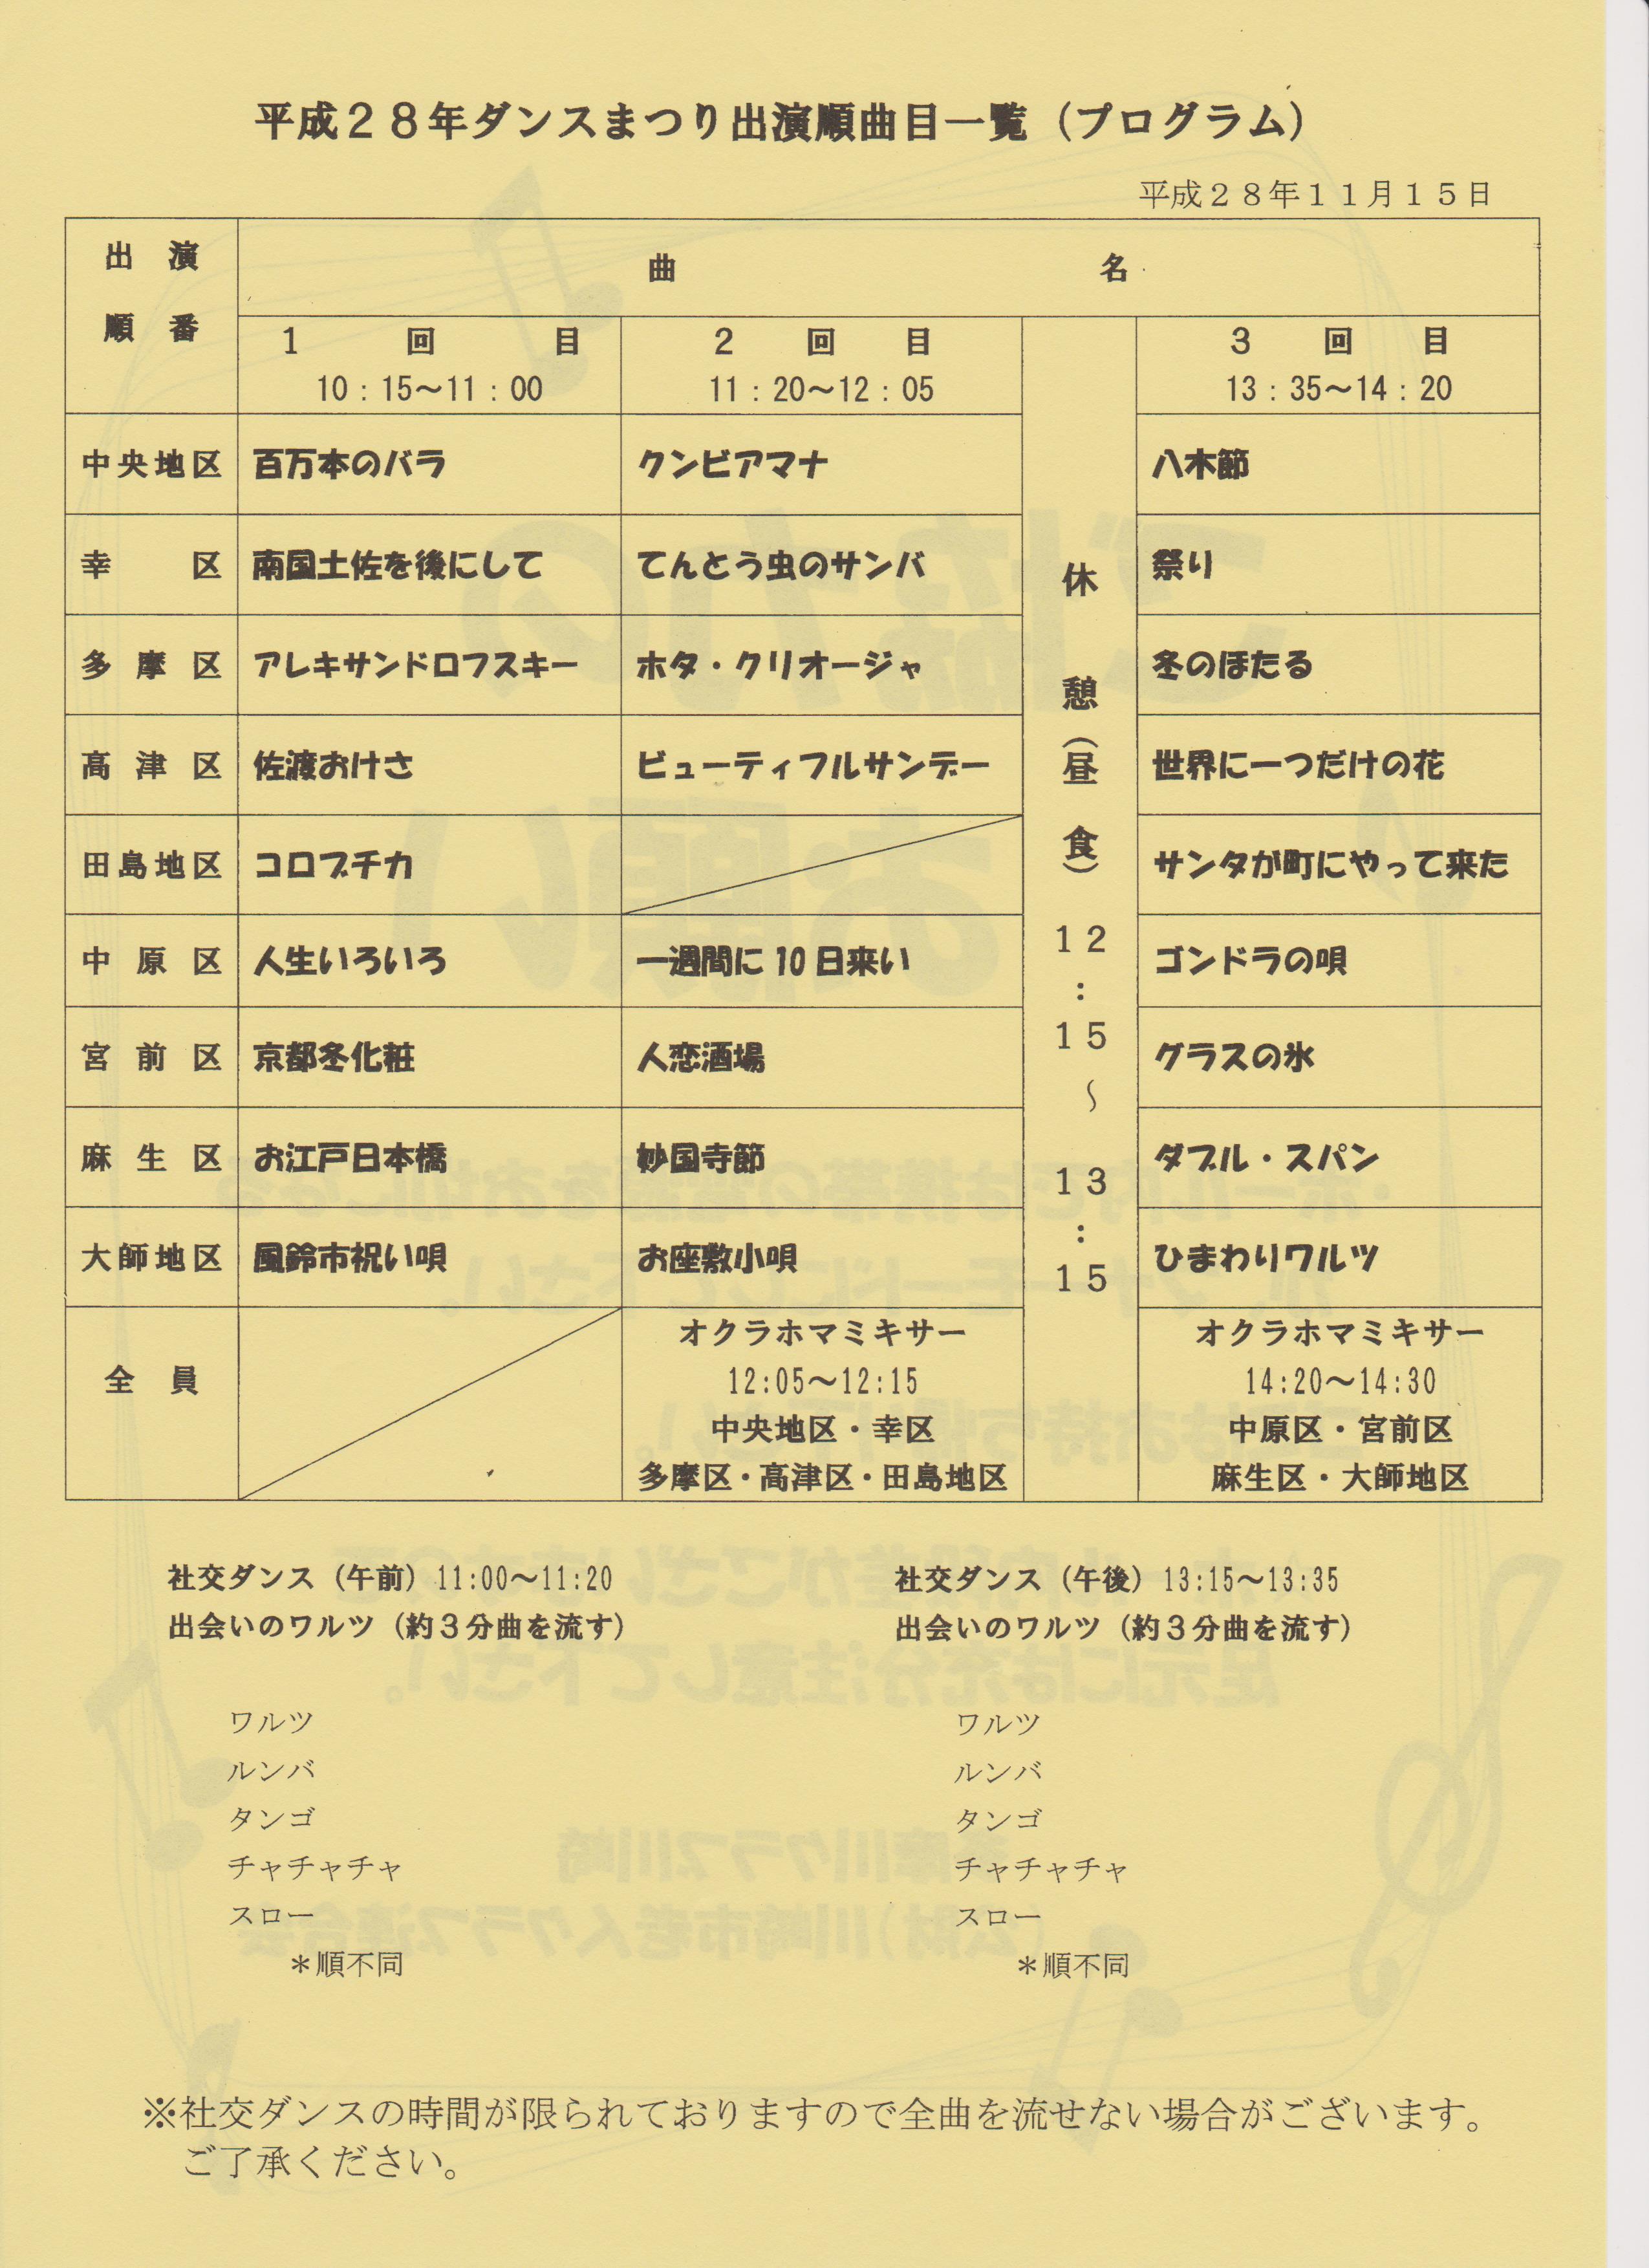 平成２８年ダンスまつり出演順曲目一覧（プログラム）
平成２８年１１月１５日
出演順番 曲名
1回目 2回目 3回目
10：15～11：00 11：20～12：05 13：35～14：20
中央地区 百万本のバラ クンビアマナ 八木節
幸区 南国土佐を後にして てんとう虫のサンバ 祭り
多摩区 アレキサンドロフスキー ホタ・クリオージャ 冬のほたる
高津区 佐渡おけさ ビューティフルサンデー 世界に一つだけの花
田島地区 コロブチカ サンタが町にやって来た
中原区 人生いろいろ 一週間に10日来い ゴンドラの唄
宮前区 京都冬化粧 人恋酒場 グラスの氷
麻生区 お江戸日本橋 妙国寺節 ダブル・スパン
大師地区 風鈴市祝い唄 お座敷小唄 ひまわりワルツ
休憩（昼食）12：15～13：15
全員 オクラホマミキサー オクラホマミキサー
12:05～12:15 14:20～14:30
中央地区・幸区 中原区・宮前区
多摩区・高津区・田島地区 麻生区・大師地区
社交ダンス（午前）11:00～11:20 社交ダンス（午後）13:15～13:35
出会いのワルツ（約３分曲を流す） 出会いのワルツ（約３分曲を流す）
ワルツ ワルツ
ルンバ ルンバ
タンゴ タンゴ
チャチャチャ チャチャチャ
スロー スロー
＊順不同 ＊順不同
※社交ダンスの時間が限られておりますので全曲を流せない場合がございます。
ご了承ください。